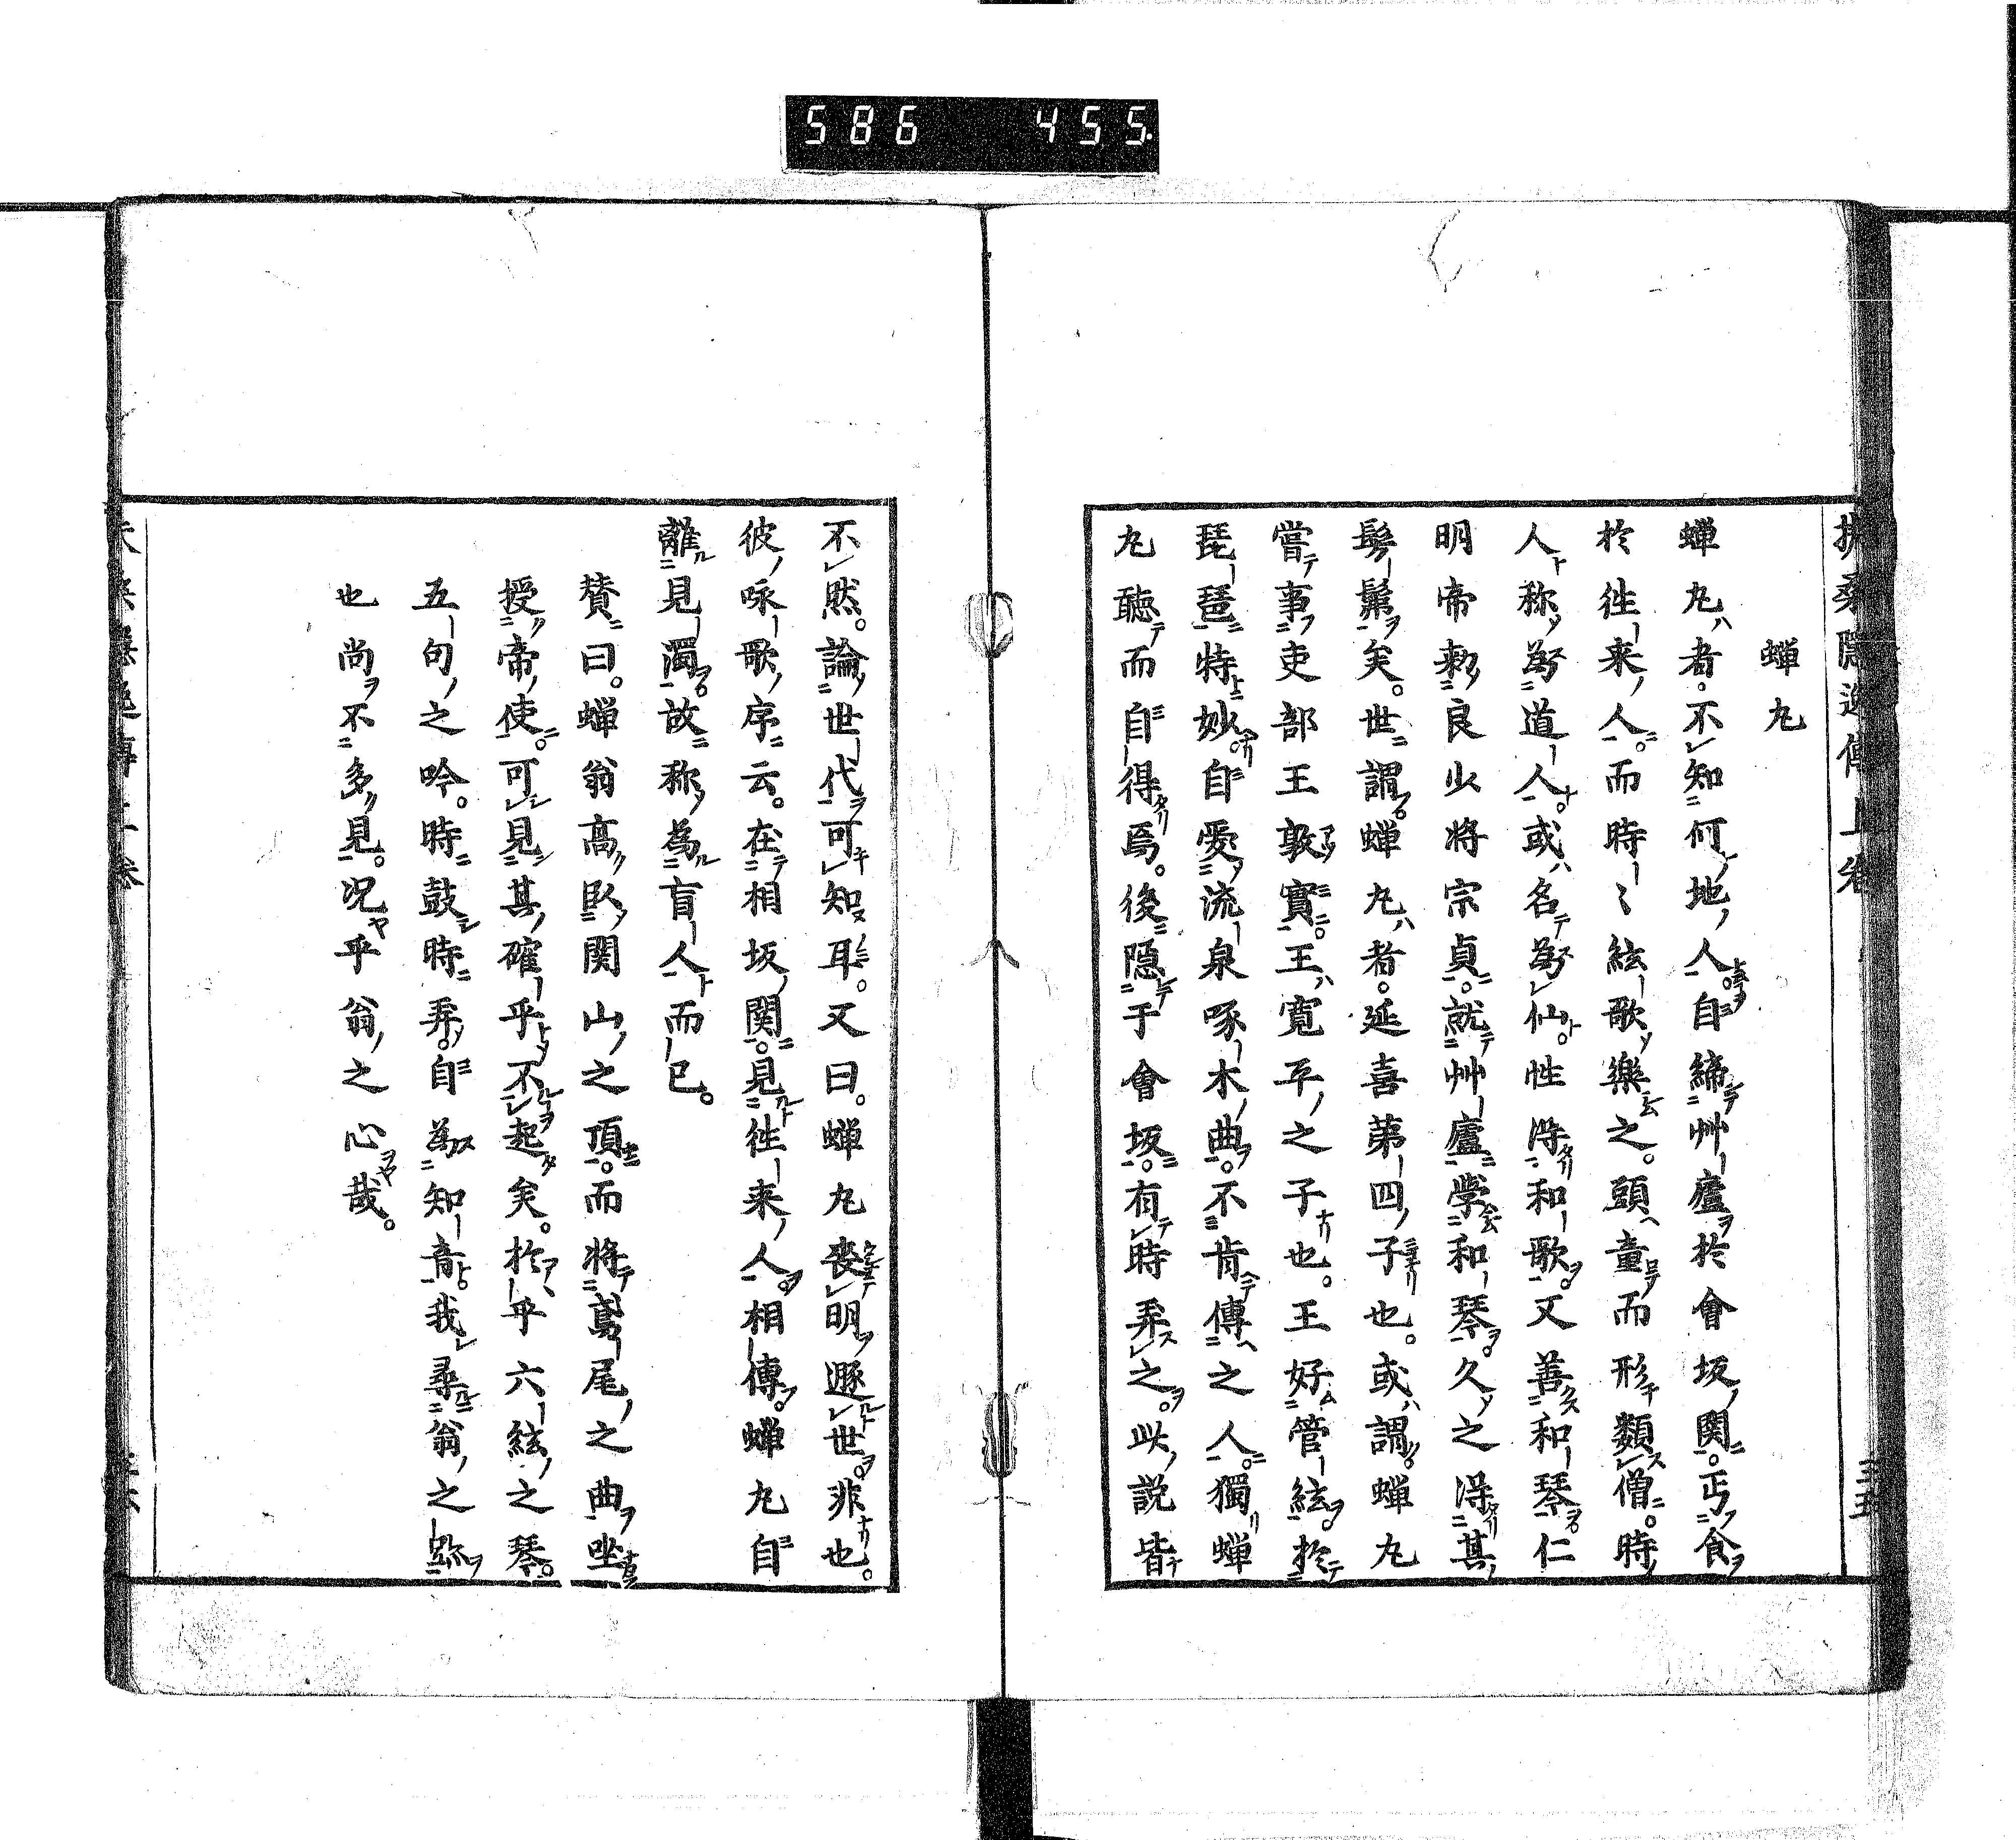 586 455
扶桑隠逸傳上卷 三五
蝉丸
蝉丸者。不知何地人。自締艸廬於會坂関。丐食
於徃来人。而時〻絃歌樂之。頭童而形類僧。時
人称為道人。或名為仙。性淂和歌。又善和琴。仁
明帝勅良少将宗貞。就艸廬学和琴。久之淂其
髣髴矣。世謂。蝉丸者。延喜第四子也。或謂。蝉丸
嘗事吏部王敦實。王寛平之子也。王好管絃。於
琵琶特妙。自愛流泉啄木曲。不肯傳之人。獨蝉
丸聽而自得焉。後隠于會坂。有時弄之。此説皆
不然。論世代可知耳。又曰。蝉丸喪明遯世。非也。
彼咏歌序云。在相坂関。見徃来人。相傳。蝉丸自
離見濁。故称為盲人而已。
賛曰。蝉翁高臥関山之頂。而将鳶尾之曲。坐
授帝使。可見其確乎不起矣。於乎六絃之琴。
五句之吟。時鼓時弄。自為知音。我尋翁之跡
也尚不多見。况乎翁之心哉。